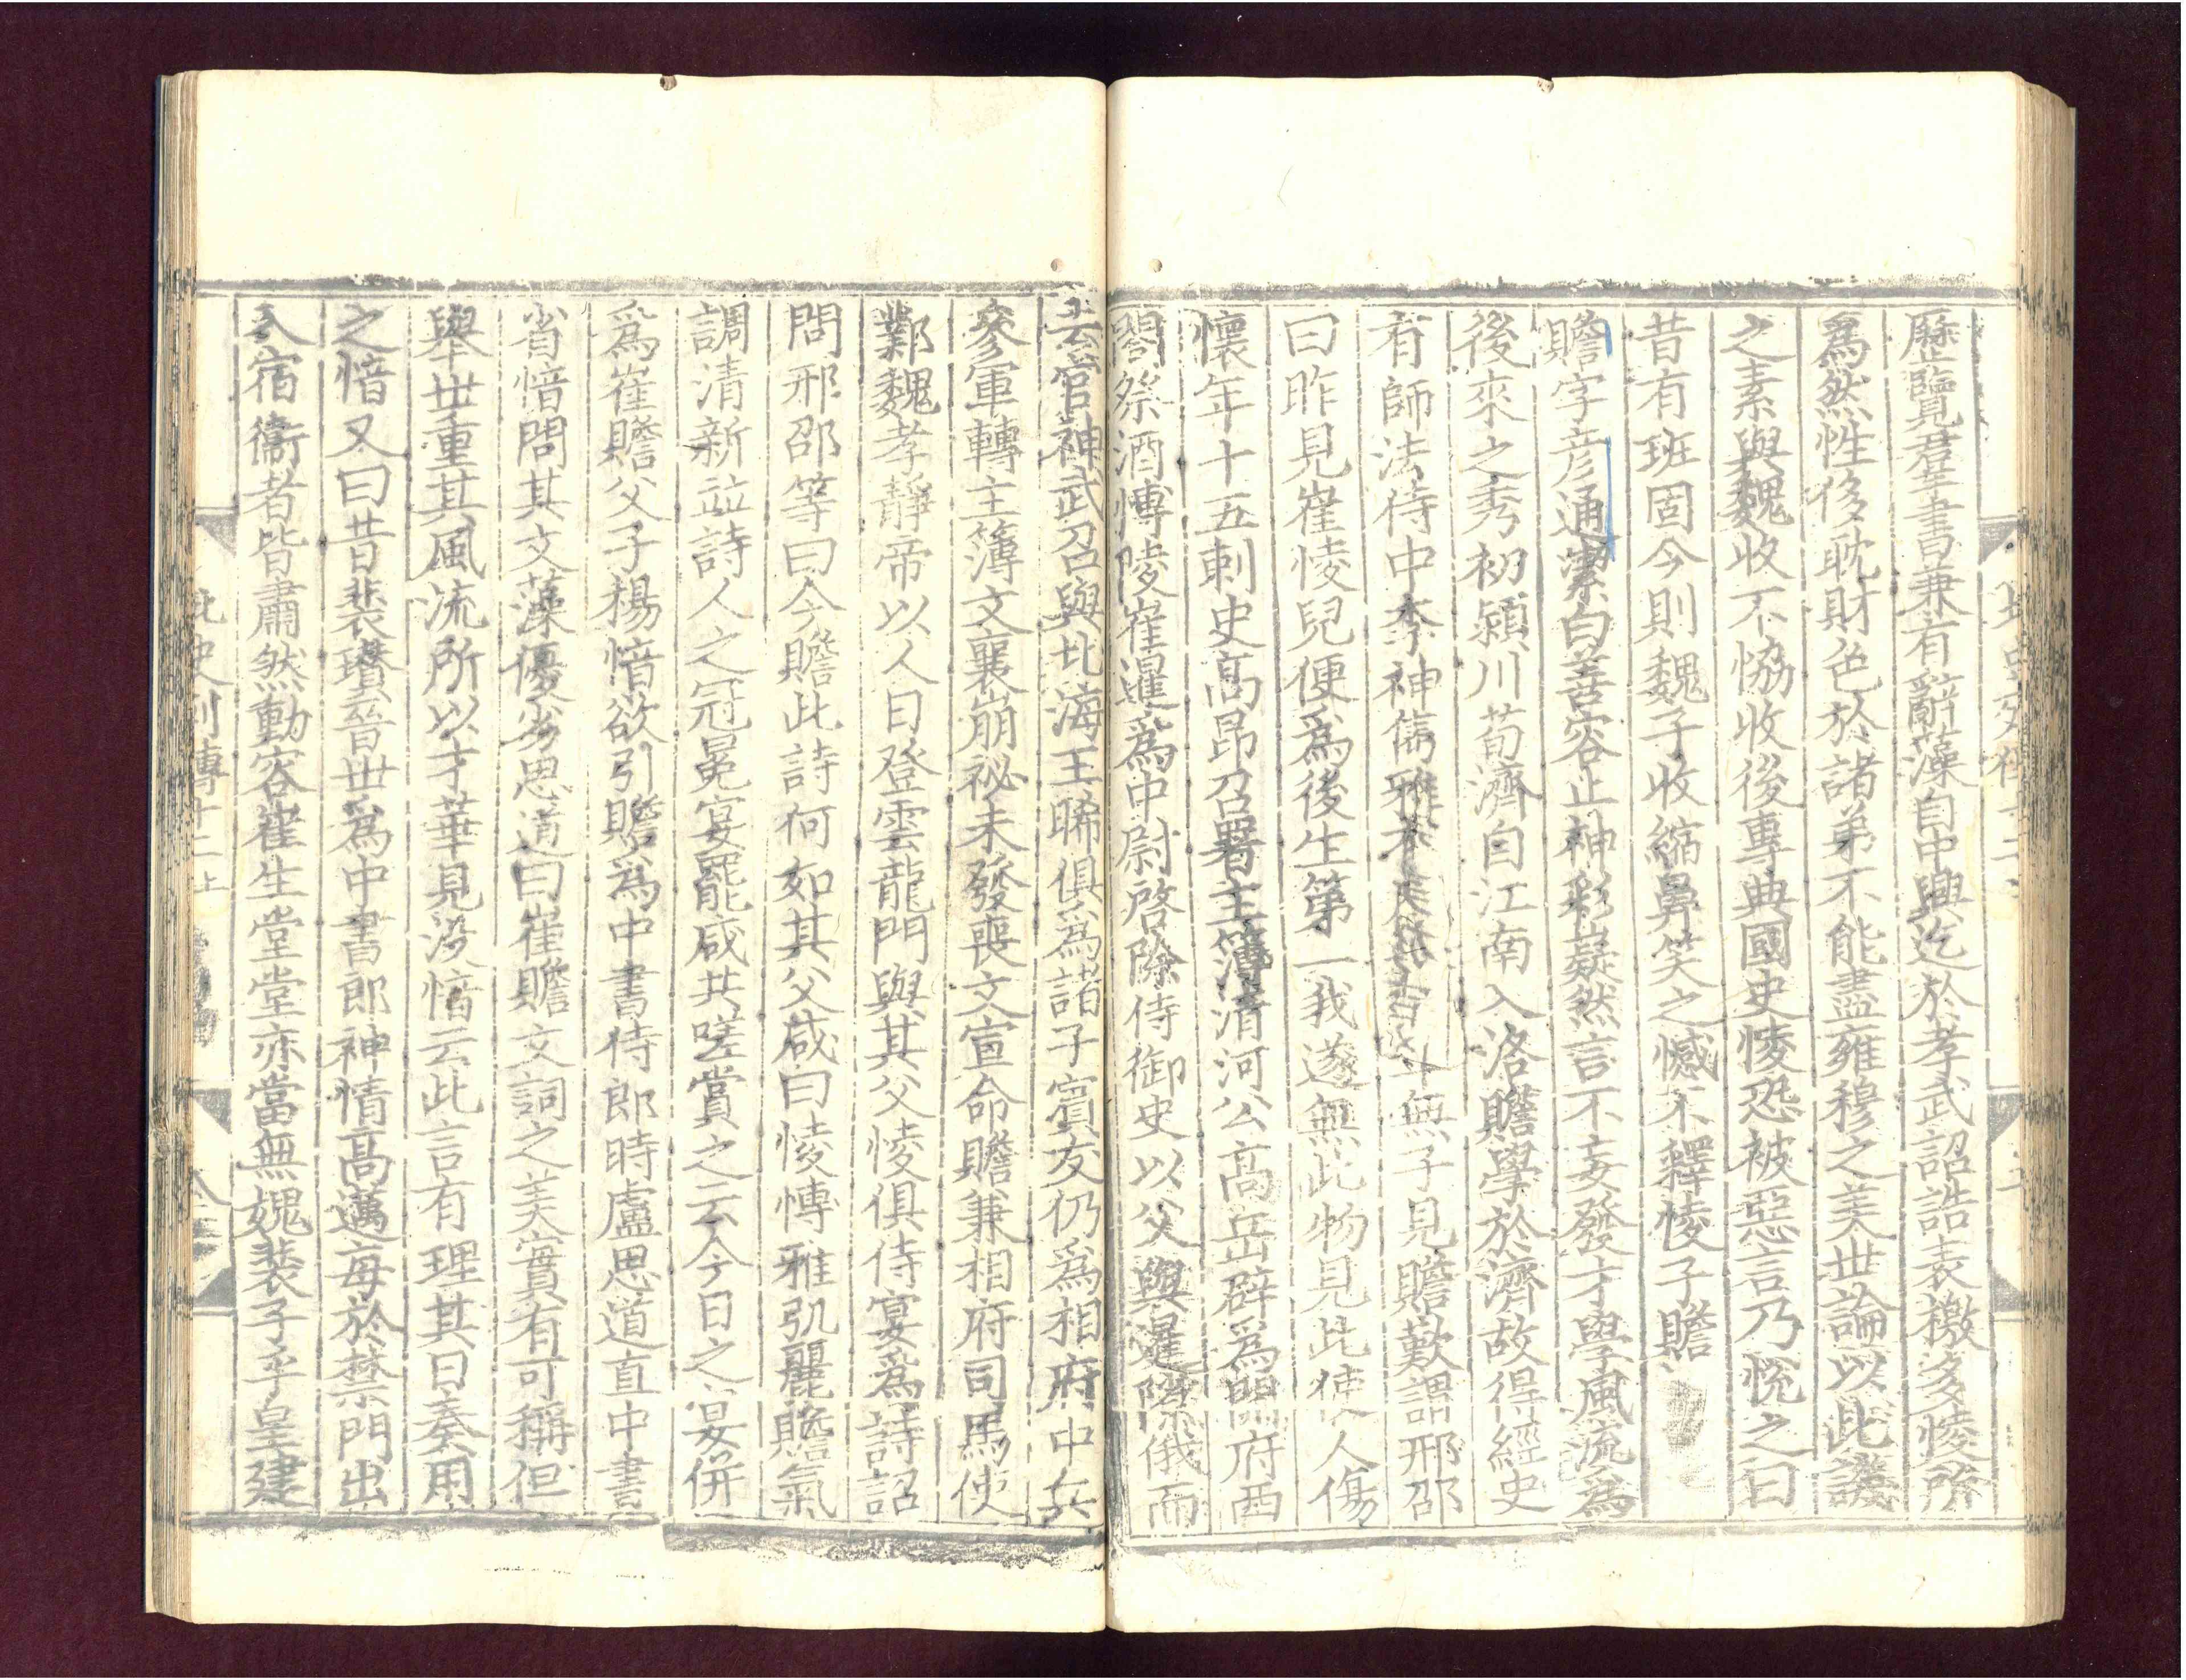 歷覽羣書兼有辭藻自中興迄於孝武詔誥表檄多㥄所
爲然性侈耽財色於諸弟不能盡雍穆之美世論以此譏
之素與魏收不恊收後專典國史㥄恐被惡言乃恱之曰
昔有班固今則魏子收縮鼻笑之憾不釋㥄子贍
贍字彦通潔白善容止神彩嶷然言不妄發才學風流爲
後來之秀初潁川荀濟自江南入洛贍學於濟故得經史
有師法侍中李神儁雅無子見贍歎謂邢邵
曰昨見崔㥄兒便爲後生第一我遂無此物見此使人傷
懷年十五刺史高昻召署主簿清河公高岳辟爲開府西
閤祭酒博陵崔暹爲中尉啓除侍御史以父與暹隙俄而
去官神武召與北海王晞俱爲諸子賓友仍爲相府中兵
參軍轉主簿文襄崩祕未發喪文宣命贍兼相府司馬使
鄴魏孝靜帝以人日登雲龍門與其父㥄俱侍宴爲詩詔
問邢邵等曰今贍此詩何如其父咸曰㥄愽雅弘麗贍氣
調清新竝詩人之冠冕宴罷咸共嗟賞之云今日之宴併
爲崔贍父子楊愔欲引贍爲中書侍郎時盧思道直中書
省愔問其文藻優劣思道曰崔贍文詞之美實有可稱但
舉世重其風流所以才華見没愔云此言有理其日奏用
之愔又曰昔裴瓚晉世爲中書郎神情高邁每於禁門出
入宿衞者皆肅然動容崔生堂堂亦當無媿裴子乎皇建
北史列傳十二上